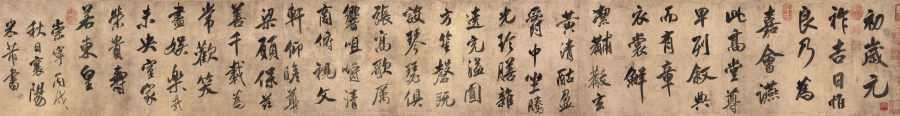 初歲元
祚吉日惟
良乃為
嘉會讌
此高堂尊
卑列敘典
而有章
衣裳鮮
潔黼黻玄
黃清酤盈
爵中坐騰
光珍膳雜
遝充溢圓
方笙磬既
設琴瑟俱
張寫歌厲
響咀嚼清
商俯視文
軒仰瞻華
梁願保茲
善千載為
常歡笑
盡娛樂哉
未央室家
榮貴壽
若東皇
崇寧丙戌
秋日襄陽
米芾書